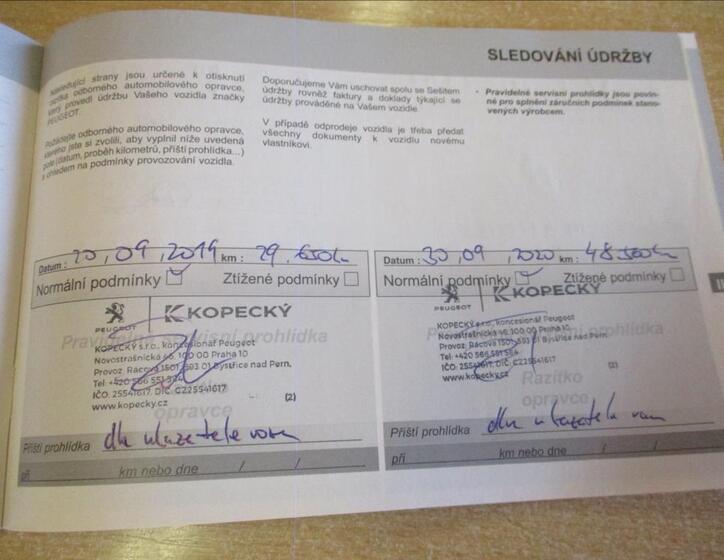 SLEDOVÁNÍ ÚDRŽBY
Následující strany jsou určené k otisknutí
razítka odborného automobilového opravce,
který provedl údržbu Vašeho vozidla značky
PEUGEOT.
Požádejte odborného automobilového opravce,
kterého jste si zvolili, aby vyplnil níže uvedená
pole (datum, proběh kilometrů, příští prohlídka...)
s ohledem na podmínky provozování vozidla.
Doporučujeme Vám uschovat spolu se Sešitem
údržby rovněž faktury a doklady týkající se
údržby prováděné na Vašem vozidle.
V případě odprodeje vozidla je třeba předat
všechny dokumenty k vozidlu novému
vlastníkovi.
• Pravidelné servisní prohlídky jsou povin-
né pro splnění záručních podmínek stano-
vených výrobcem.
Datum : 20,09,2019 km : 29.650km
Normální podmínky Ztížené podmínky
PEUGEOT KOPECKÝ
Pravidelná servisní prohlídka
KOPECKÝ s.r.o., koncesionář Peugeot
Novostrašnická 46, 100 00 Praha 10
Provoz. Rácová 1501, 593 01 Bystřice nad Pern.
Tel: +420 566 551 584
IČO: 25541617, DIČ: CZ25541617
www.kopecky.cz
(2)
opravce
Příští prohlídka dle ukazatele vozu
při km nebo dne / /
Datum : 30,09,2020 km : 48.500km
Normální podmínky Ztížené podmínky
PEUGEOT KOPECKÝ
KOPECKÝ s.r.o., koncesionář Peugeot
Novostrašnická 46, 100 00 Praha 10
Provoz. Rácová 1501, 593 01 Bystřice nad Pern.
Tel: +420 566 551 584
IČO: 25541617, DIČ: CZ25541617
www.kopecky.cz
(2)
Razítko
opravce
Příští prohlídka dle ukazatele vozu
při km nebo dne / /